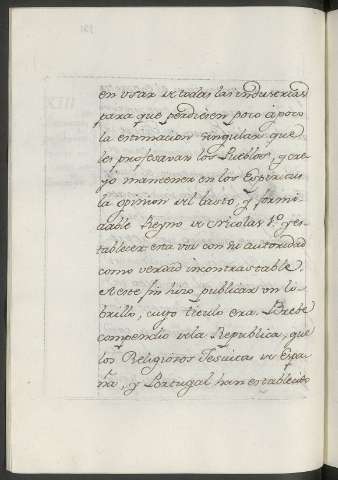 en usar de todas las industrias
para que perdiesen poco à poco
la estimacion singular que
les profesavan los Pueblos, y cre
yó mantener en los Espiritus
la opinion del basto, y formi
dable Reyno de Nicolas 1.º y es
tablecer esta voz con su autoridad
como verdad incontrastable.
A este fin hizo publicar un lì
brillo, cuyo titulo era Brebe
compendio de la Republica, que
los Religiosos Jesuitas de Espa
ña, y Portugal han establecido